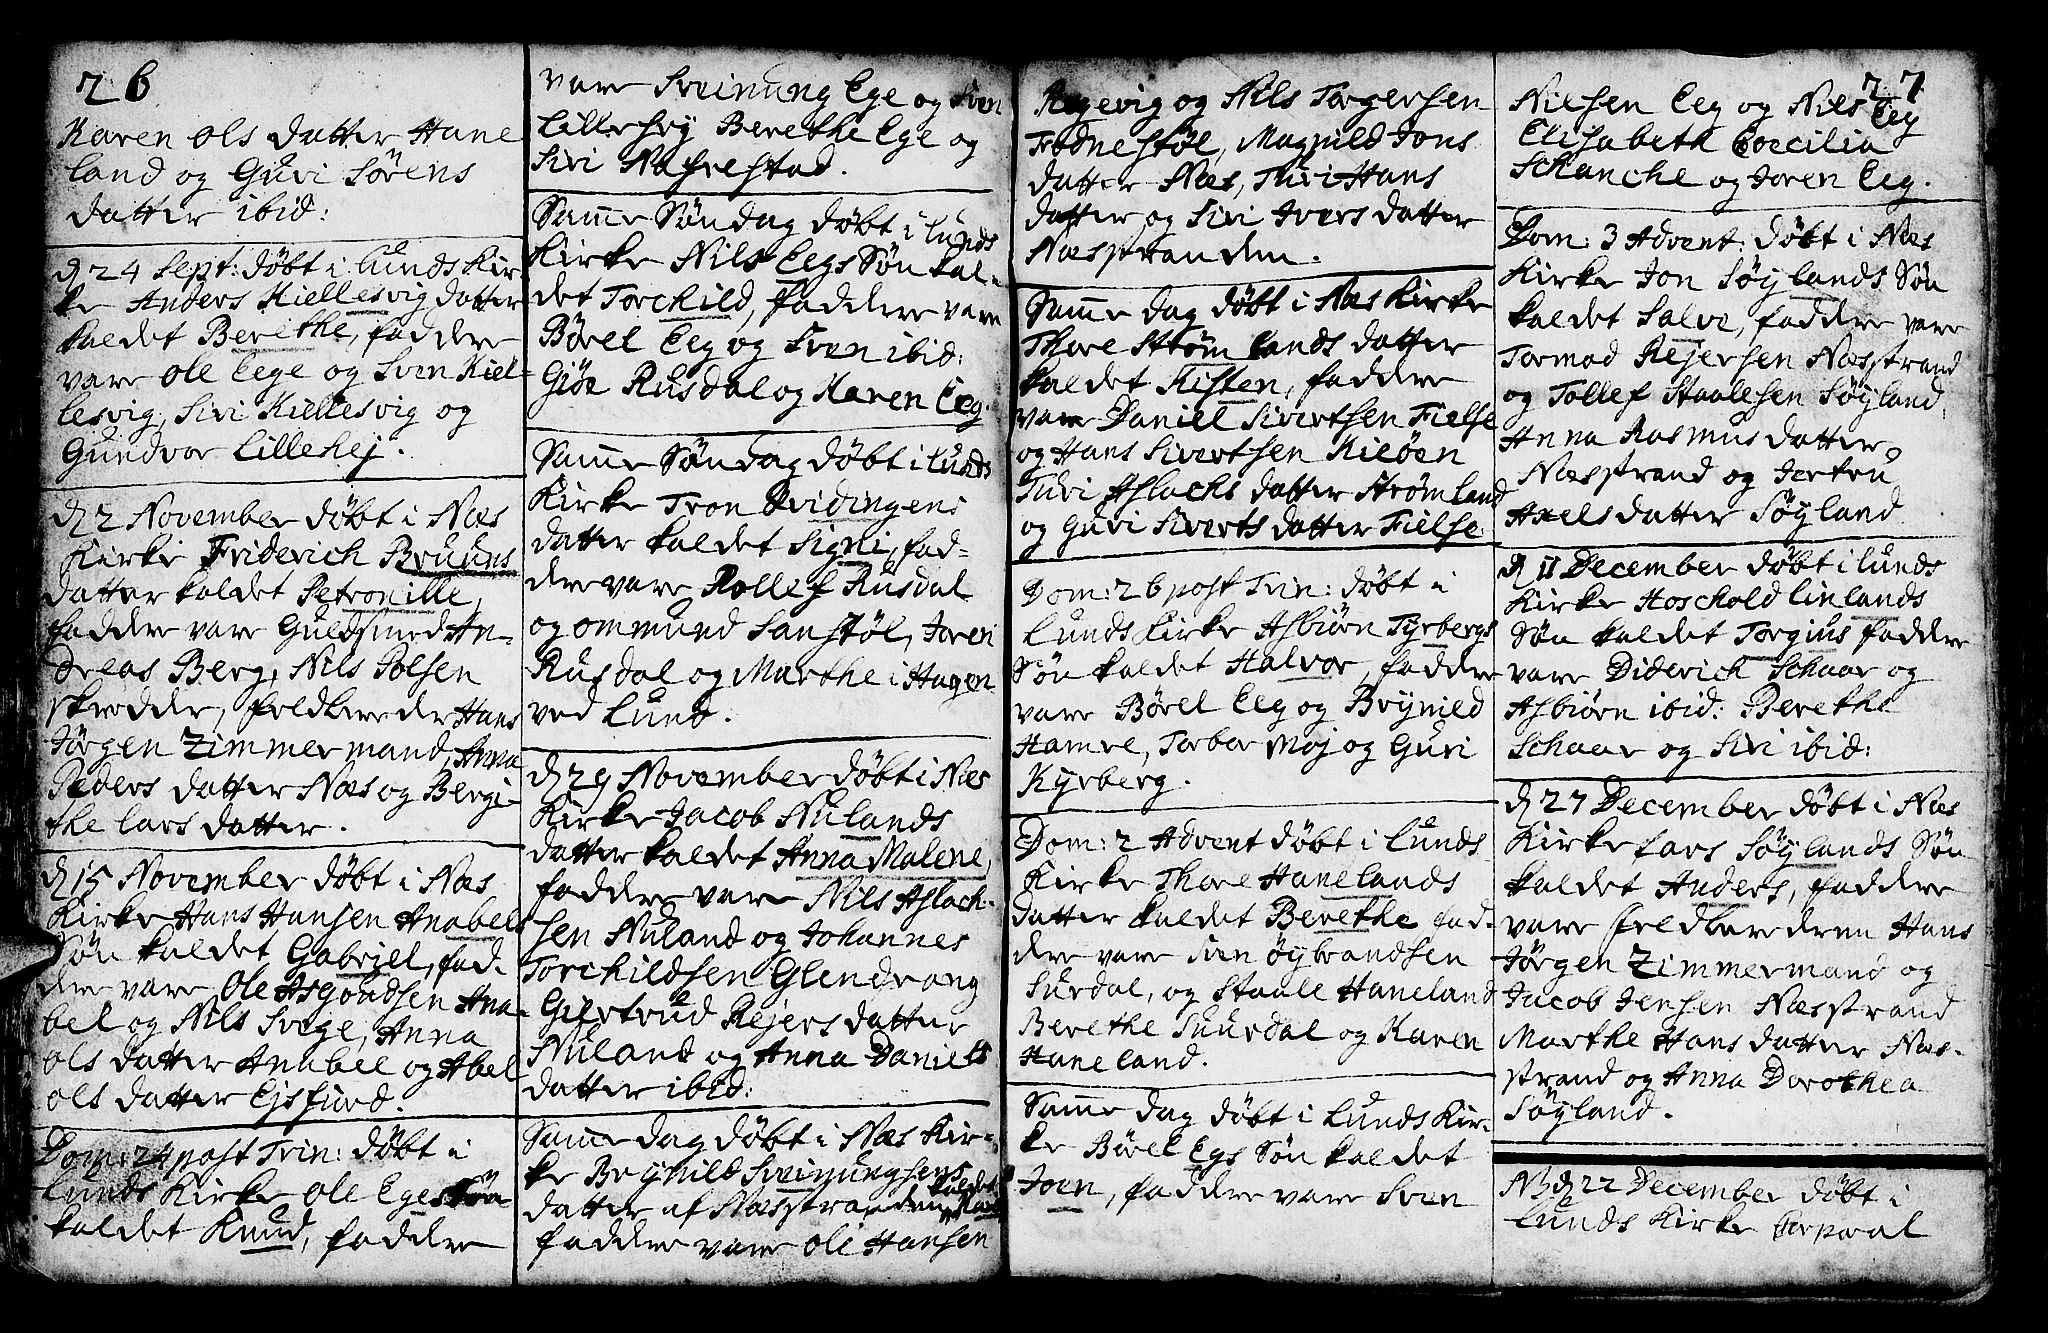 26
Karen Ols datter Hane
land og Guri Sörens
datter ibid:
d 24 Sept: döbt i Lunds Kir-
ke Anders Kiellesvig datter
kaldet Berethe, faddere
vare Ole Eege og Sven Kiel-
lesvig, Siri Kiellesvig og
Gundvor Lillehej.
d 2 November döbt i Næs
Kirke Friderich Bruuns
datter kaldet Petronille,
faddere vare Guldsmed An-
dreas Berg, Nils Polsen
skrædder, feldberede Hans
Jörgen Zimmermand, Anna
Peders datter Næs og Bergi-
the Lars datter.
d 15 November döbt i Næs
Kirke Hans Hansen Anabels
Sön kaldet Gabriel, fad-
dere vare Ole Asgoudsen Ana-
bel og Nils Svege, Anna
Ols datter Anabel og Abel
Ols datter Ejsfiurd.
Dom: 24 post Trin: döbt i
Lunds Kirke Ole Eges Sön
kaldet Knud, faddere
vare Sveinung Ege og Sven
Lillehej Berethe Ege og
Siri Nafrestad.
Samme Söndag döbt i Lunds
Kirke Nils Eegs Sön kal-
det Torchild, faddere vare
Börel Eeg og Sven ibid:
Giöe Rusdal og Karen Eeg.
Samme Söndag döbt i Lunds
Kirke Tron Qvidingens
datter kaldet Signi, fad-
dere vare Rollef Rusdal
og Ommund Sanstöl, Joren
Rusdal og Marthe i Hagen
ved Lund.
d 29 November döbt i Næs
Kirke Jacob Nulands
datter kaldet Anna Malene,
faddere vare Nils Aslach-
sen Nuland og Johannes
Torchildsen Glendrang
Giertrud Rejers datter
Nuland og Anna Daniels
datter ibid:
Samme dag döbt i Næs Kir-
ke Brynild Sveinungsens
datter af Næsstranden kaldet
faddere vare Ole Hansen
27
Regevig og Nils Torgersen
Frödnestöl, Magnild Jons
datter Næs, Turi Hans
datter og Siri Ivers datter
Næsstranden.
Samme dag döbt i Næs Kirke
Thore Strömlands datter
kaldet Kisten, faddere
vare Daniel Sivertsen Fielse
og Hans Sivertsen Kielöen
Turi Aslachs datter Strömland
og Guri Siverts datter Fielse.
Dom: 26 post Trin: döbt i
Lunds Kirke Asbiörn Kyrbergs
Sön kaldet Halvor, faddere
vare Börel Eeg og Brynild
Hamre, Torbor Moj og Guri
Kyrberg.
Dom: 2 Advent döbt i Lunds
Kirke Thore Hanelands
datter kaldet Berethe fad-
dere vare Iven Öybrandsen
Surdal, og Staale Haneland
Berethe Suurdal og Karen
Haneland.
Samme dag döbt i Lunds Kir-
ke Börel Egs Sön kaldet
Joen, faddere vare Sven
Nielsen Eeg og Niels Eeg
Elisabeth Coecilia
Schanche og Joren Eeg.
Dom: 3 Advent: döbt i Næs
Kirke Jon Söylands Sön
kaldet Salve, faddere vare
Tormod Rejersen Næsstrand
og Tollef Staalesen Söyland,
Anna Rasmus datter
Næsstrand og Jertru
Axels datter Söyland
d 11 December döbt i Lunds
Kirke Hoschold Linlands
Sön kaldet Torgius faddere
vare Diderich Schaar og
Asbiörn ibid: Berethe
Schaar og Siri ibid:
d 27 December döbt i Næs
Kirke Lars Söylands Sön
kaldet Anders, faddere
vare feldberederen Hans
Jörgen Zimmermand og
Jacob Jensen Næsstrand
Marthe Hans datter Næs-
strand og Anna Dorothea
Söyland.
NB d 22 December döbt i
Lunds Kirke Corporal